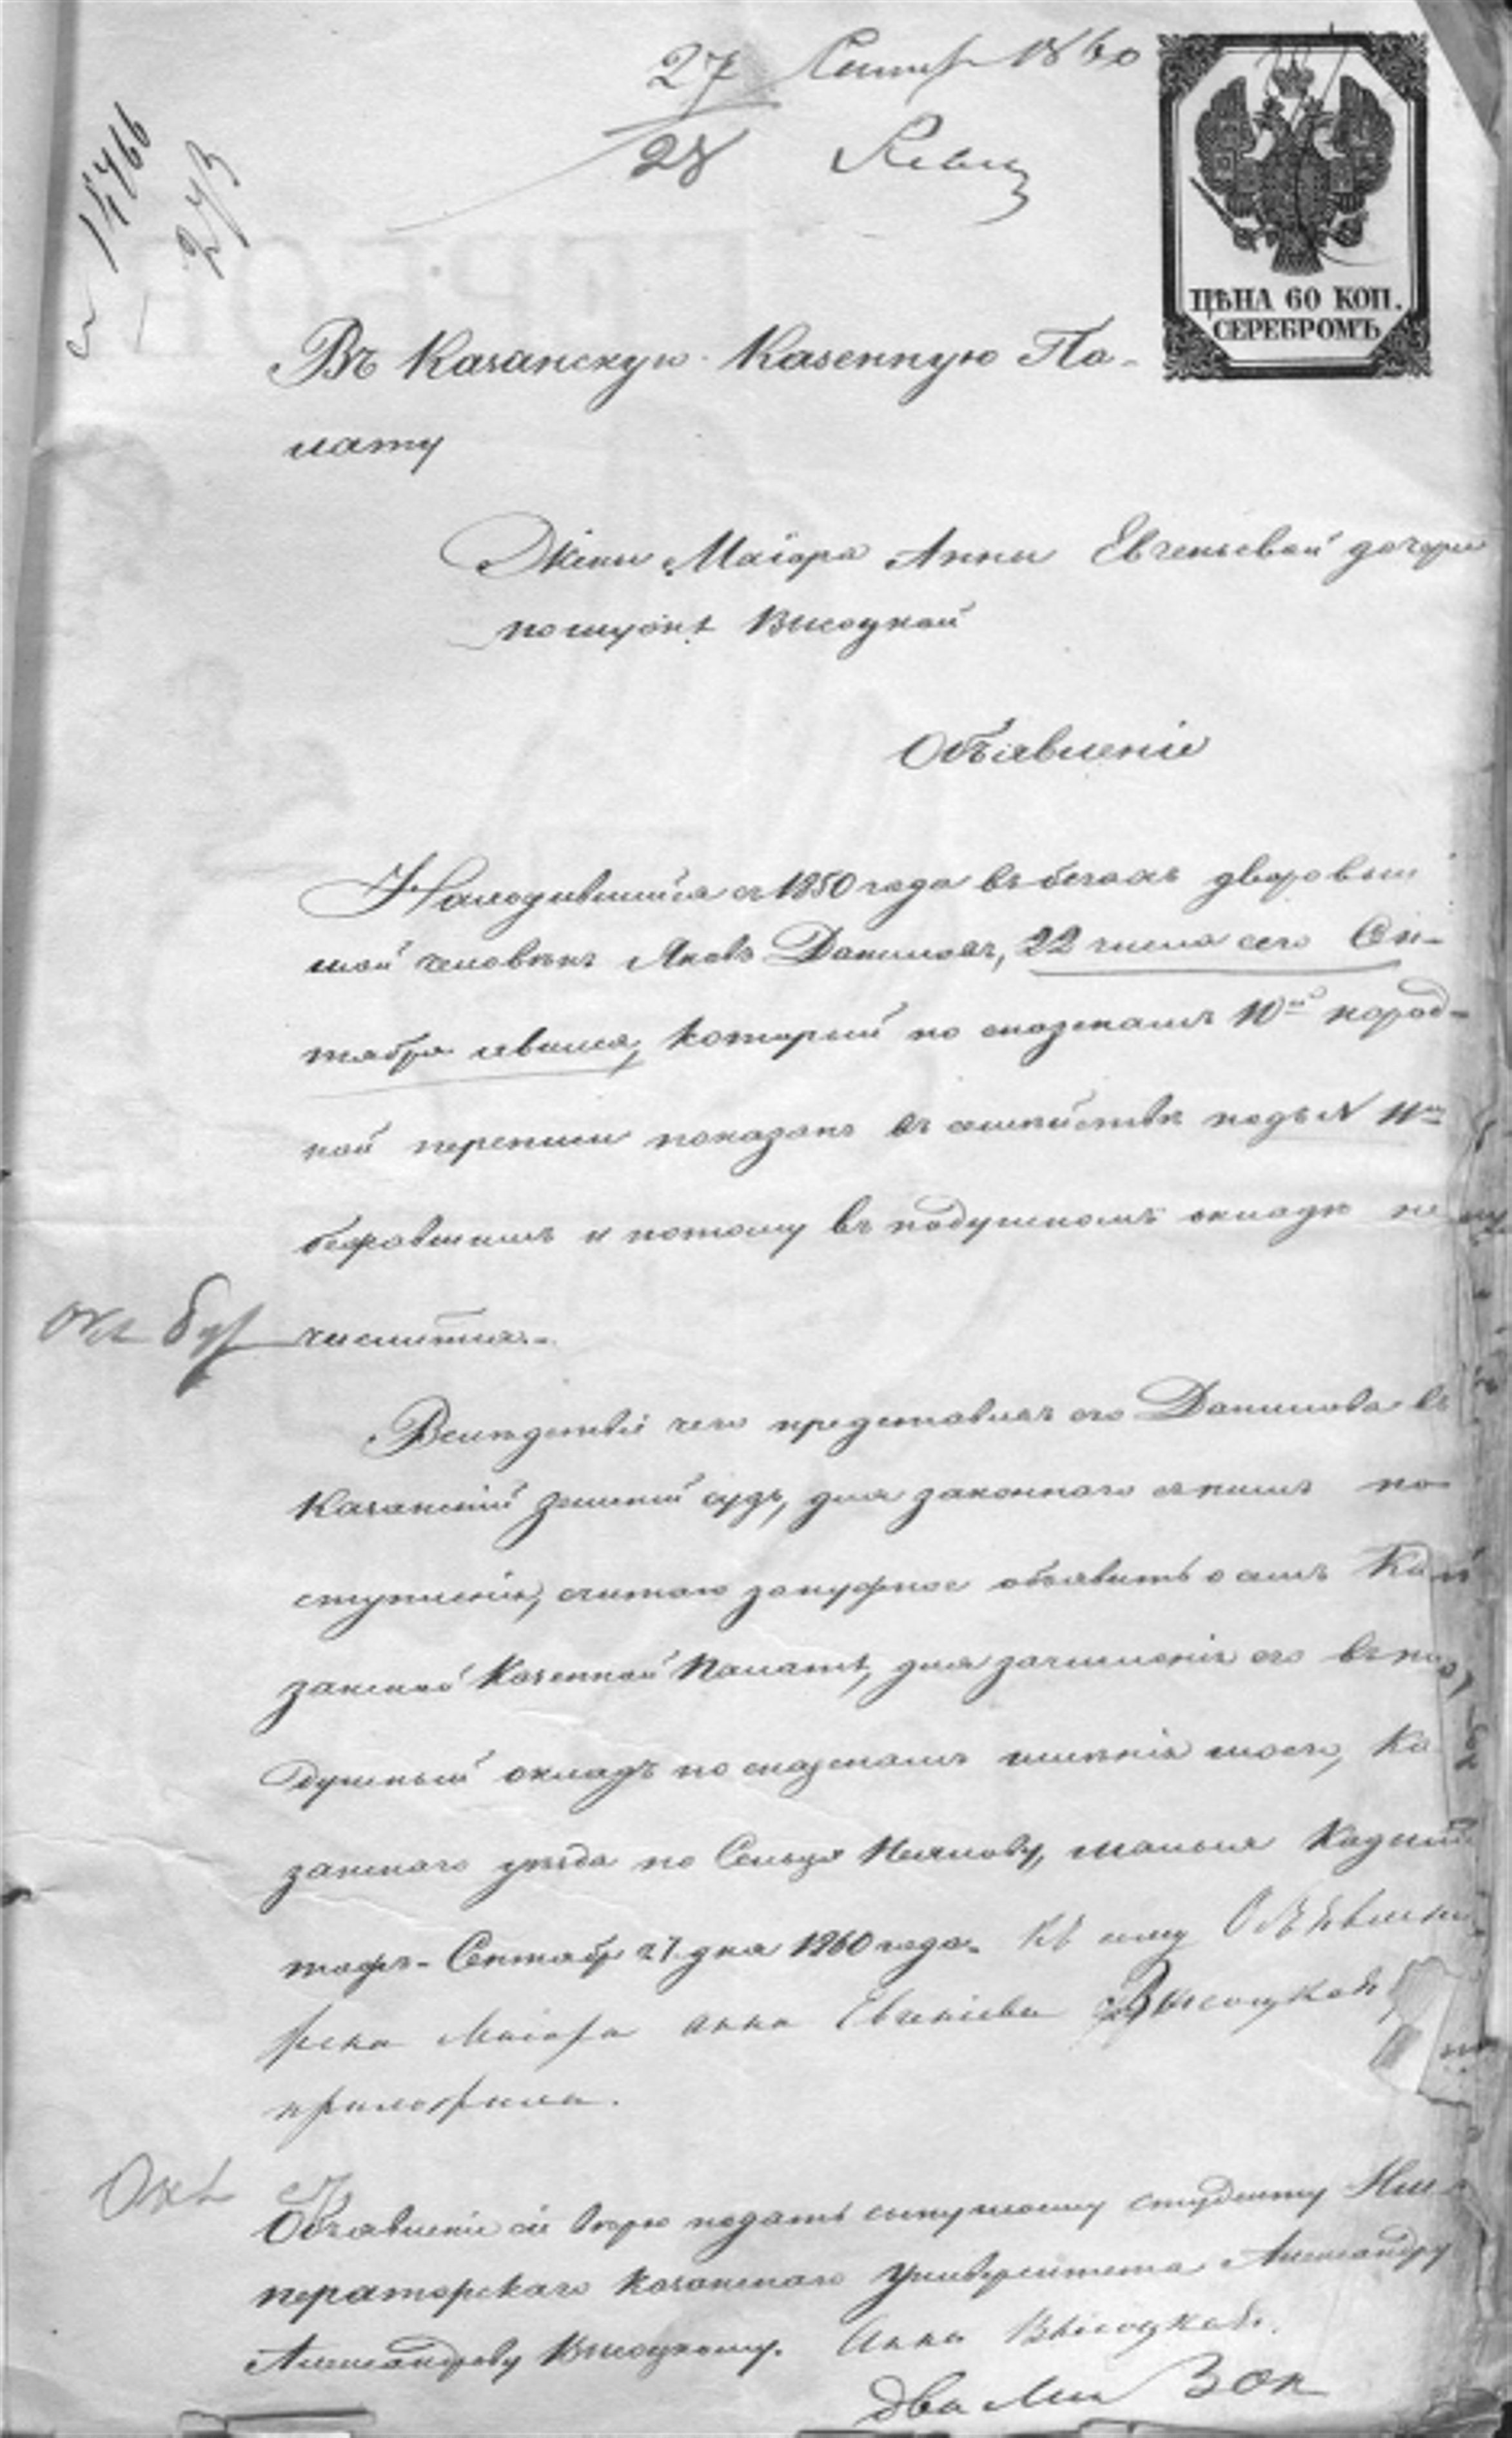 27 Сентяб 1860
28
14766
273
ЦѢНА 60 КОП.
СЕРЕБРОМЪ
Въ Казанскую Казенную Па-
лату
Жены Маіора Анны Евгеньевой дочери
Высоцкой
Объявленіе
Находившійся съ 1850 года въ бегахъ дворовый
мой человѣкъ Яковъ Даниловъ, 22 числа сего Сен-
тября явился, который по сказкамъ 10й народ-
ной переписи показанъ въ семействѣ подъ №
бежавшимъ и потому въ подушномъ окладѣ не
числится.-
Вслѣдствіе чего представляя его Данилова въ
Казанскій земскій судъ, для законнаго съ нимъ по-
ступленія, считаю занужное объявить о семъ Ка-
занской Казенной Палатѣ, для зачисленія его въ по-
душный окладъ по сказкамъ имѣнія моего, Ка-
занскаго уѣзда по Сельцу
Сентября 27 дня 1860 года. Къ сему Объявленію
жена Маіора Анна Евгеніева Высоцкая
приложила.
Объявленіе сіе вѣрю подать сыну моему студенту Им-
ператорскаго Казанскаго Университета Александру
Александрову Высоцкому. Анна Высоцкая.